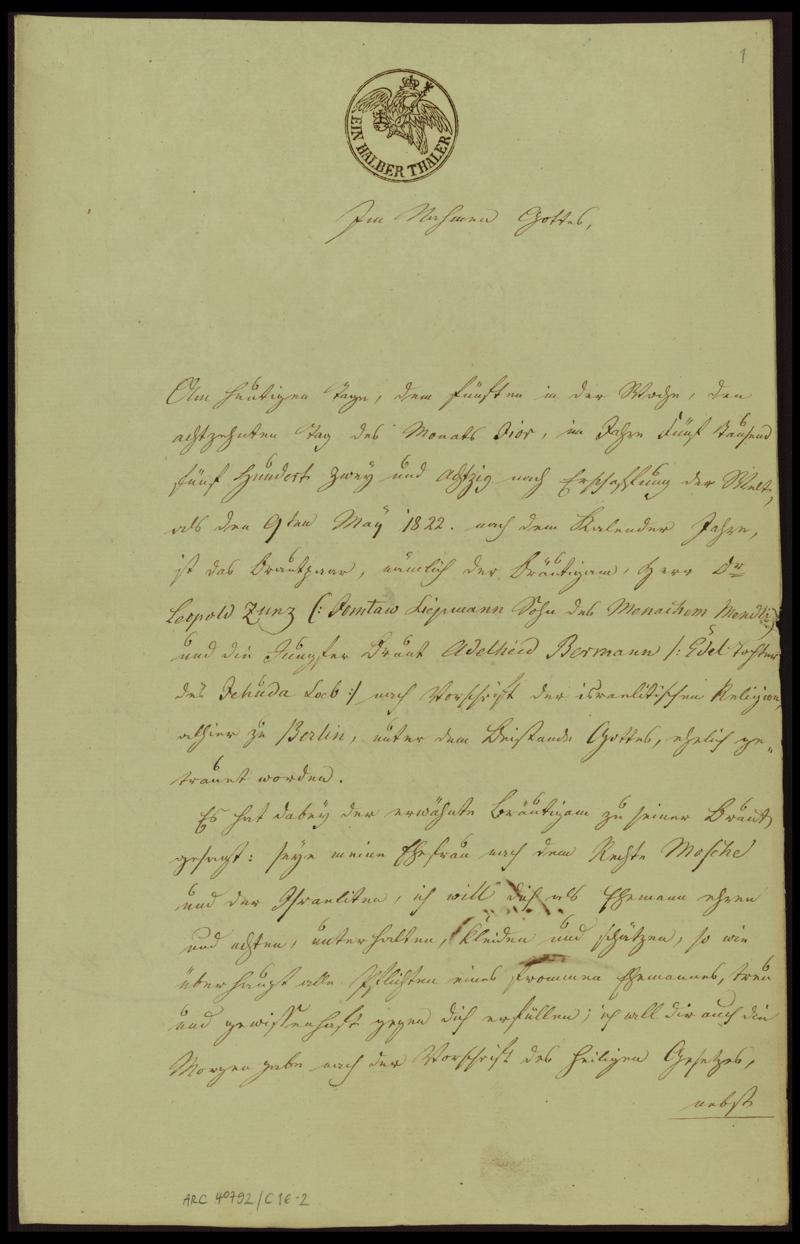 1
EIN HALBER THALER
Im Nahmen Gottes,
Am heutigen Tage, dem fünften in der Woche, den
achtzehnten Tag des Monats Jior, im Jahre Fünf tausend
fünf Hundert zwey und Achtzig nach Erschaffung der Welt,
als den 9ten May 1822. nach dem Kalender Jahre,
ist das Brautpaar, nämlich der Bräutigam, Herr Dr
Leopold Zunz (: Jomtaw Liepmann Sohn des Menachem Mendl:)
und die Jungfer Braut Adelheid Bermann /: Edel Tochter
des Jehuda Loeb :/ nach Vorschrift der israelitischen Religion,
alhier zu Berlin, unter dem Beistande Gottes, ehelich ge„
trauet worden.
Es hat dabey der erwähnte Bräutigam zu seiner Braut
gesagt: seye meine Ehefrau nach dem Rechte Mosche
und der Israeliten, ich will dich als Ehemann ehren
und achten, unterhalten, kleiden und schätzen, so wie
überhaupt alle Pflichten eines frommen Ehemannes, treu
und gewissenhaft gegen dich erfüllen; ich will dir auch die
Morgengabe nach der Vorschrift des heiligen Gesetzes,
nebst
ARC 4º792/C16-2